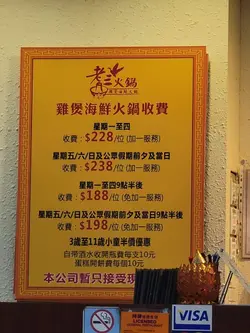 老三火鍋
雞煲海鮮火鍋收費
星期一至四
收費：$228/位 (加一服務)
星期五/六/日及公眾假期前夕及當日
收費：$238/位 (加一服務)
星期一至四9點半後
收費：$188/位 (免加一服務)
星期五/六/日及公眾假期前夕及當日9點半後
收費：$198/位 (免加一服務)
3歲至11歲小童半價優惠
自帶酒水收開瓶費每支10元
蛋糕開餅費每個10元
本公司暫只接受現
LICENSED
VISA